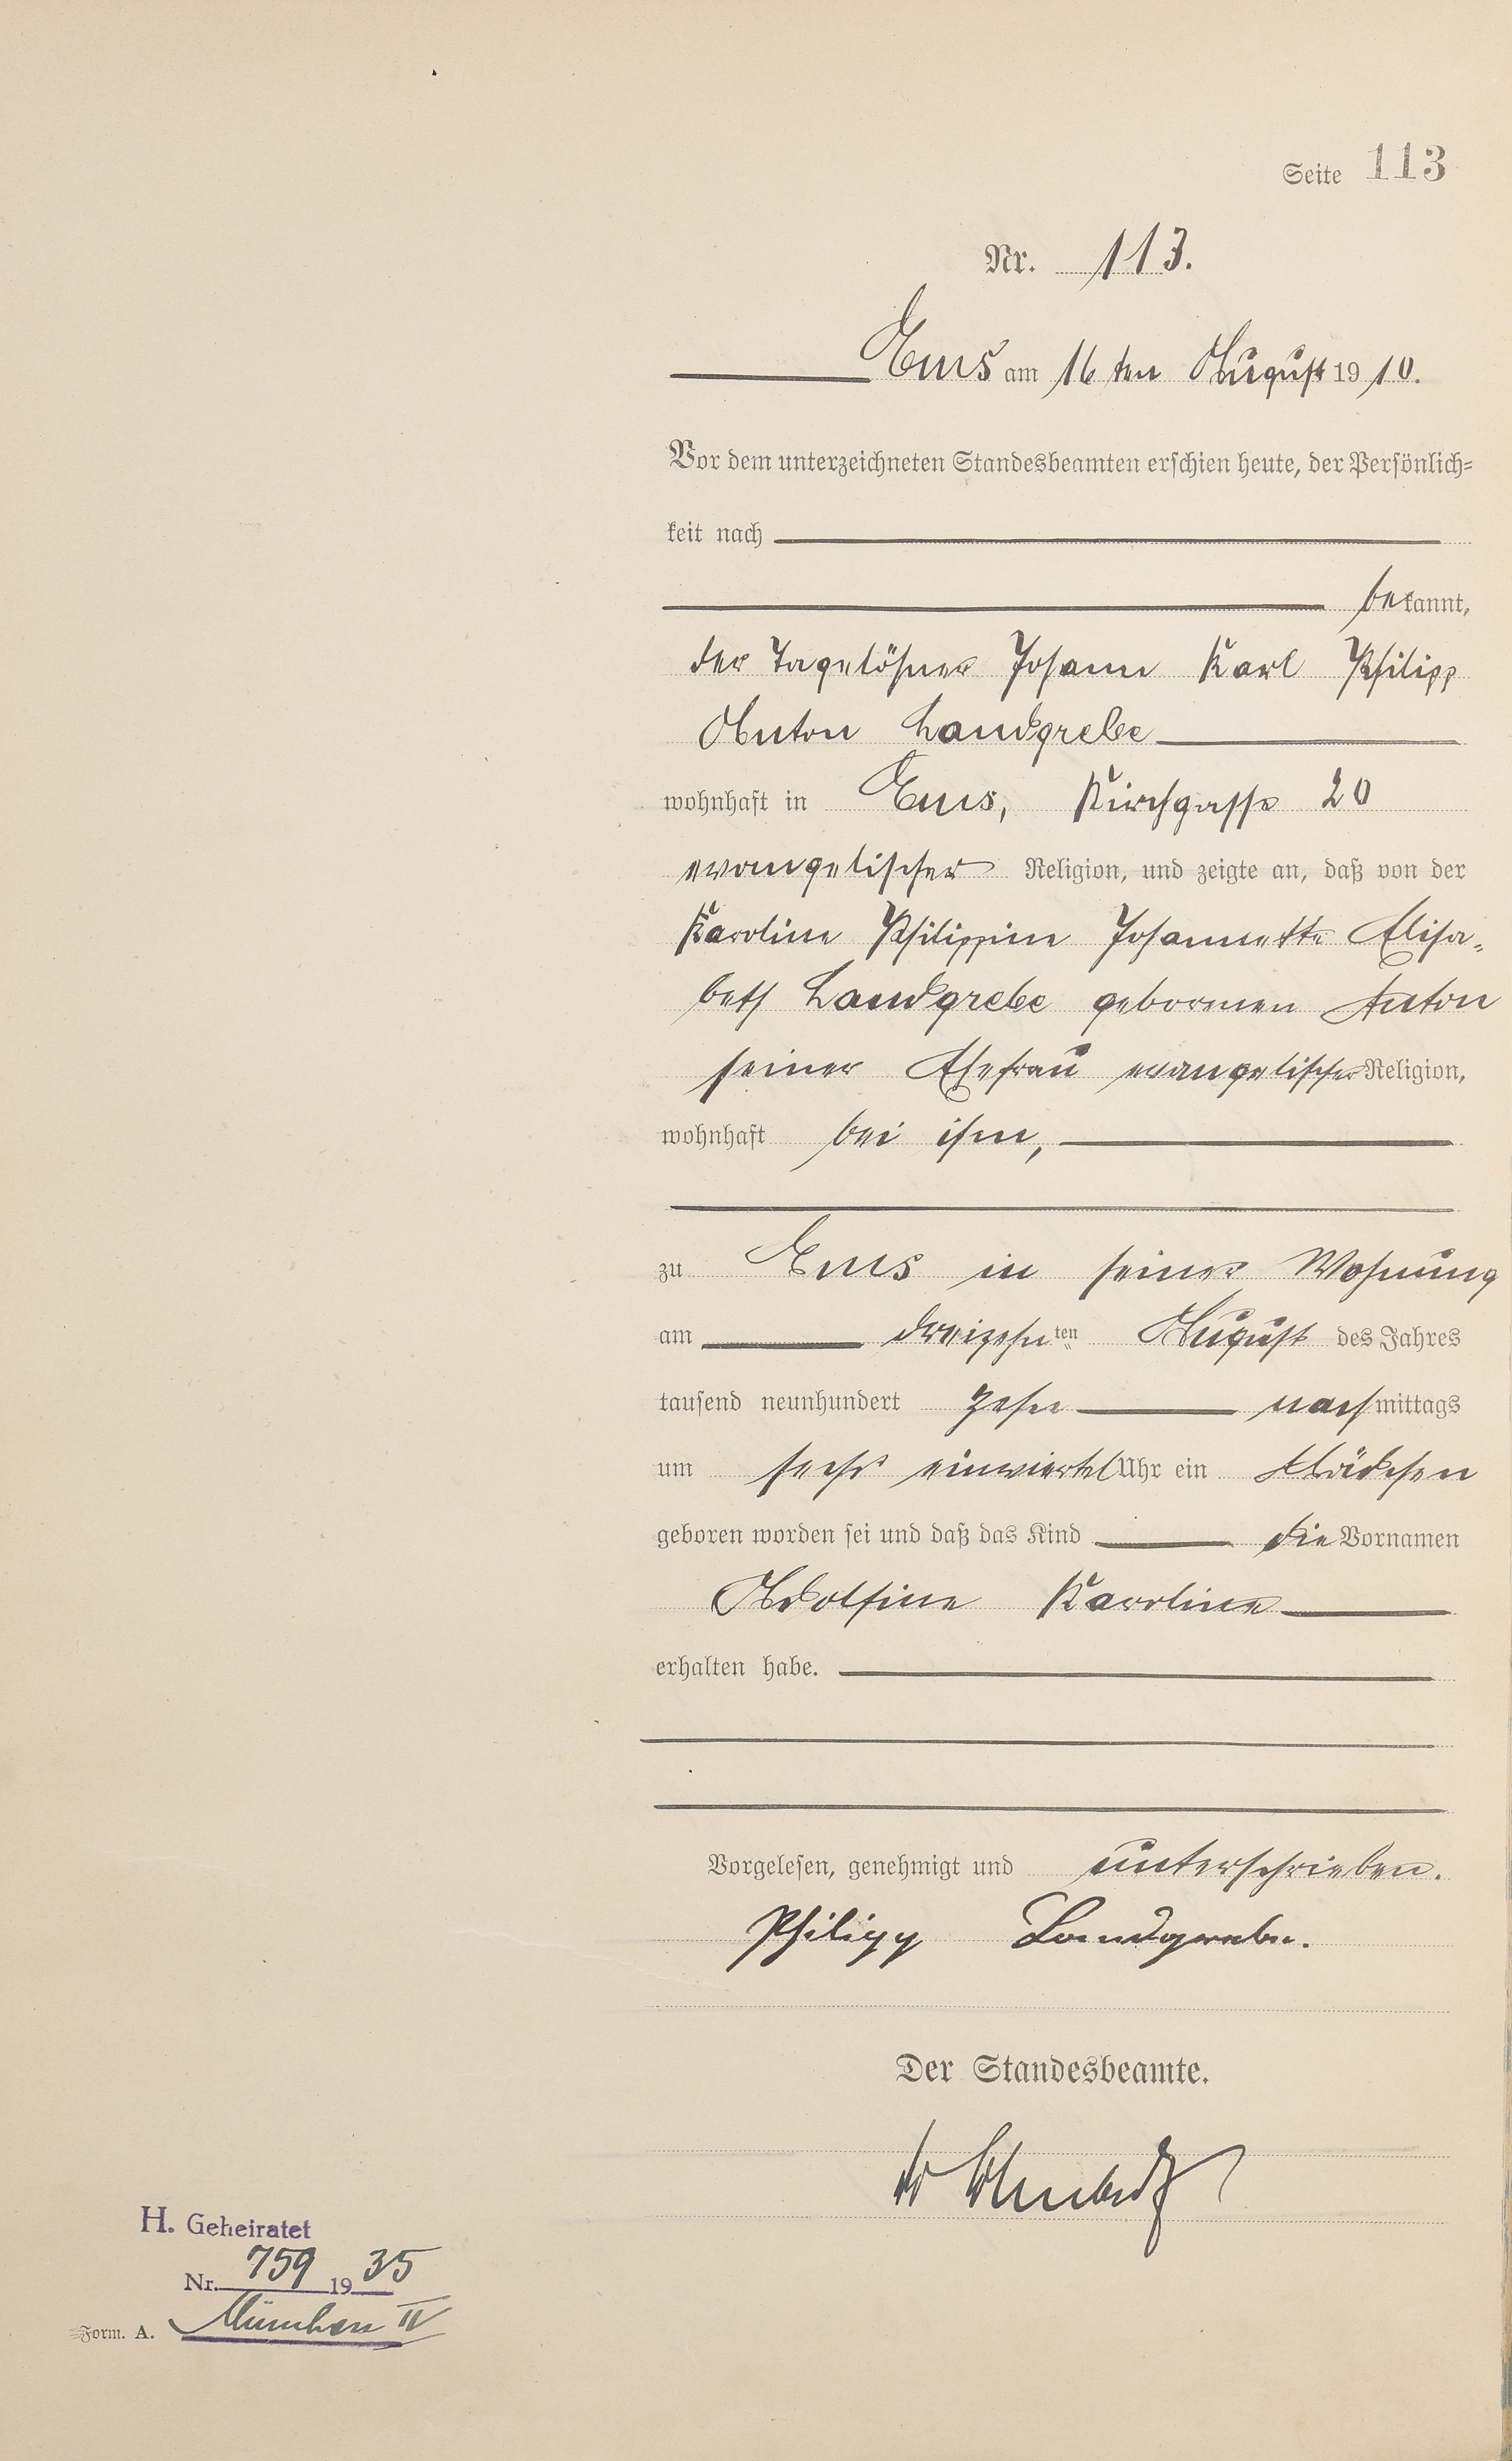 Seite 113
Nr. 113.
Ems am 16ten August 1910.
Vor dem unterzeichneten Standesbeamten erschien heute, der Persönlich=
keit nach
bekannt,
der Tagelöhner Johann Karl Philipp
Anton Landgrebe
wohnhaft in Ems, Kirchgasse 20
evangelischer Religion, und zeigte an, daß von der
Karoline Philippine Johannette Elisa-
beth Landgrebe gebornen Anton
seiner Ehefrau evangelischer Religion,
wohnhaft bei ihm,
zu Ems in seiner Wohnung
am dreizehnten August des Jahres
tausend neunhundert zehn nachmittags
um sechs einviertel Uhr ein Mädchen
geboren worden sei und daß das Kind die Vornamen
Adolfine Karoline
erhalten habe.
Vorgelesen, genehmigt und unterschrieben.
Philipp Landgrebe.
Der Standesbeamte.
H. Geheiratet
Nr. 759 1935
Form. A. München IV